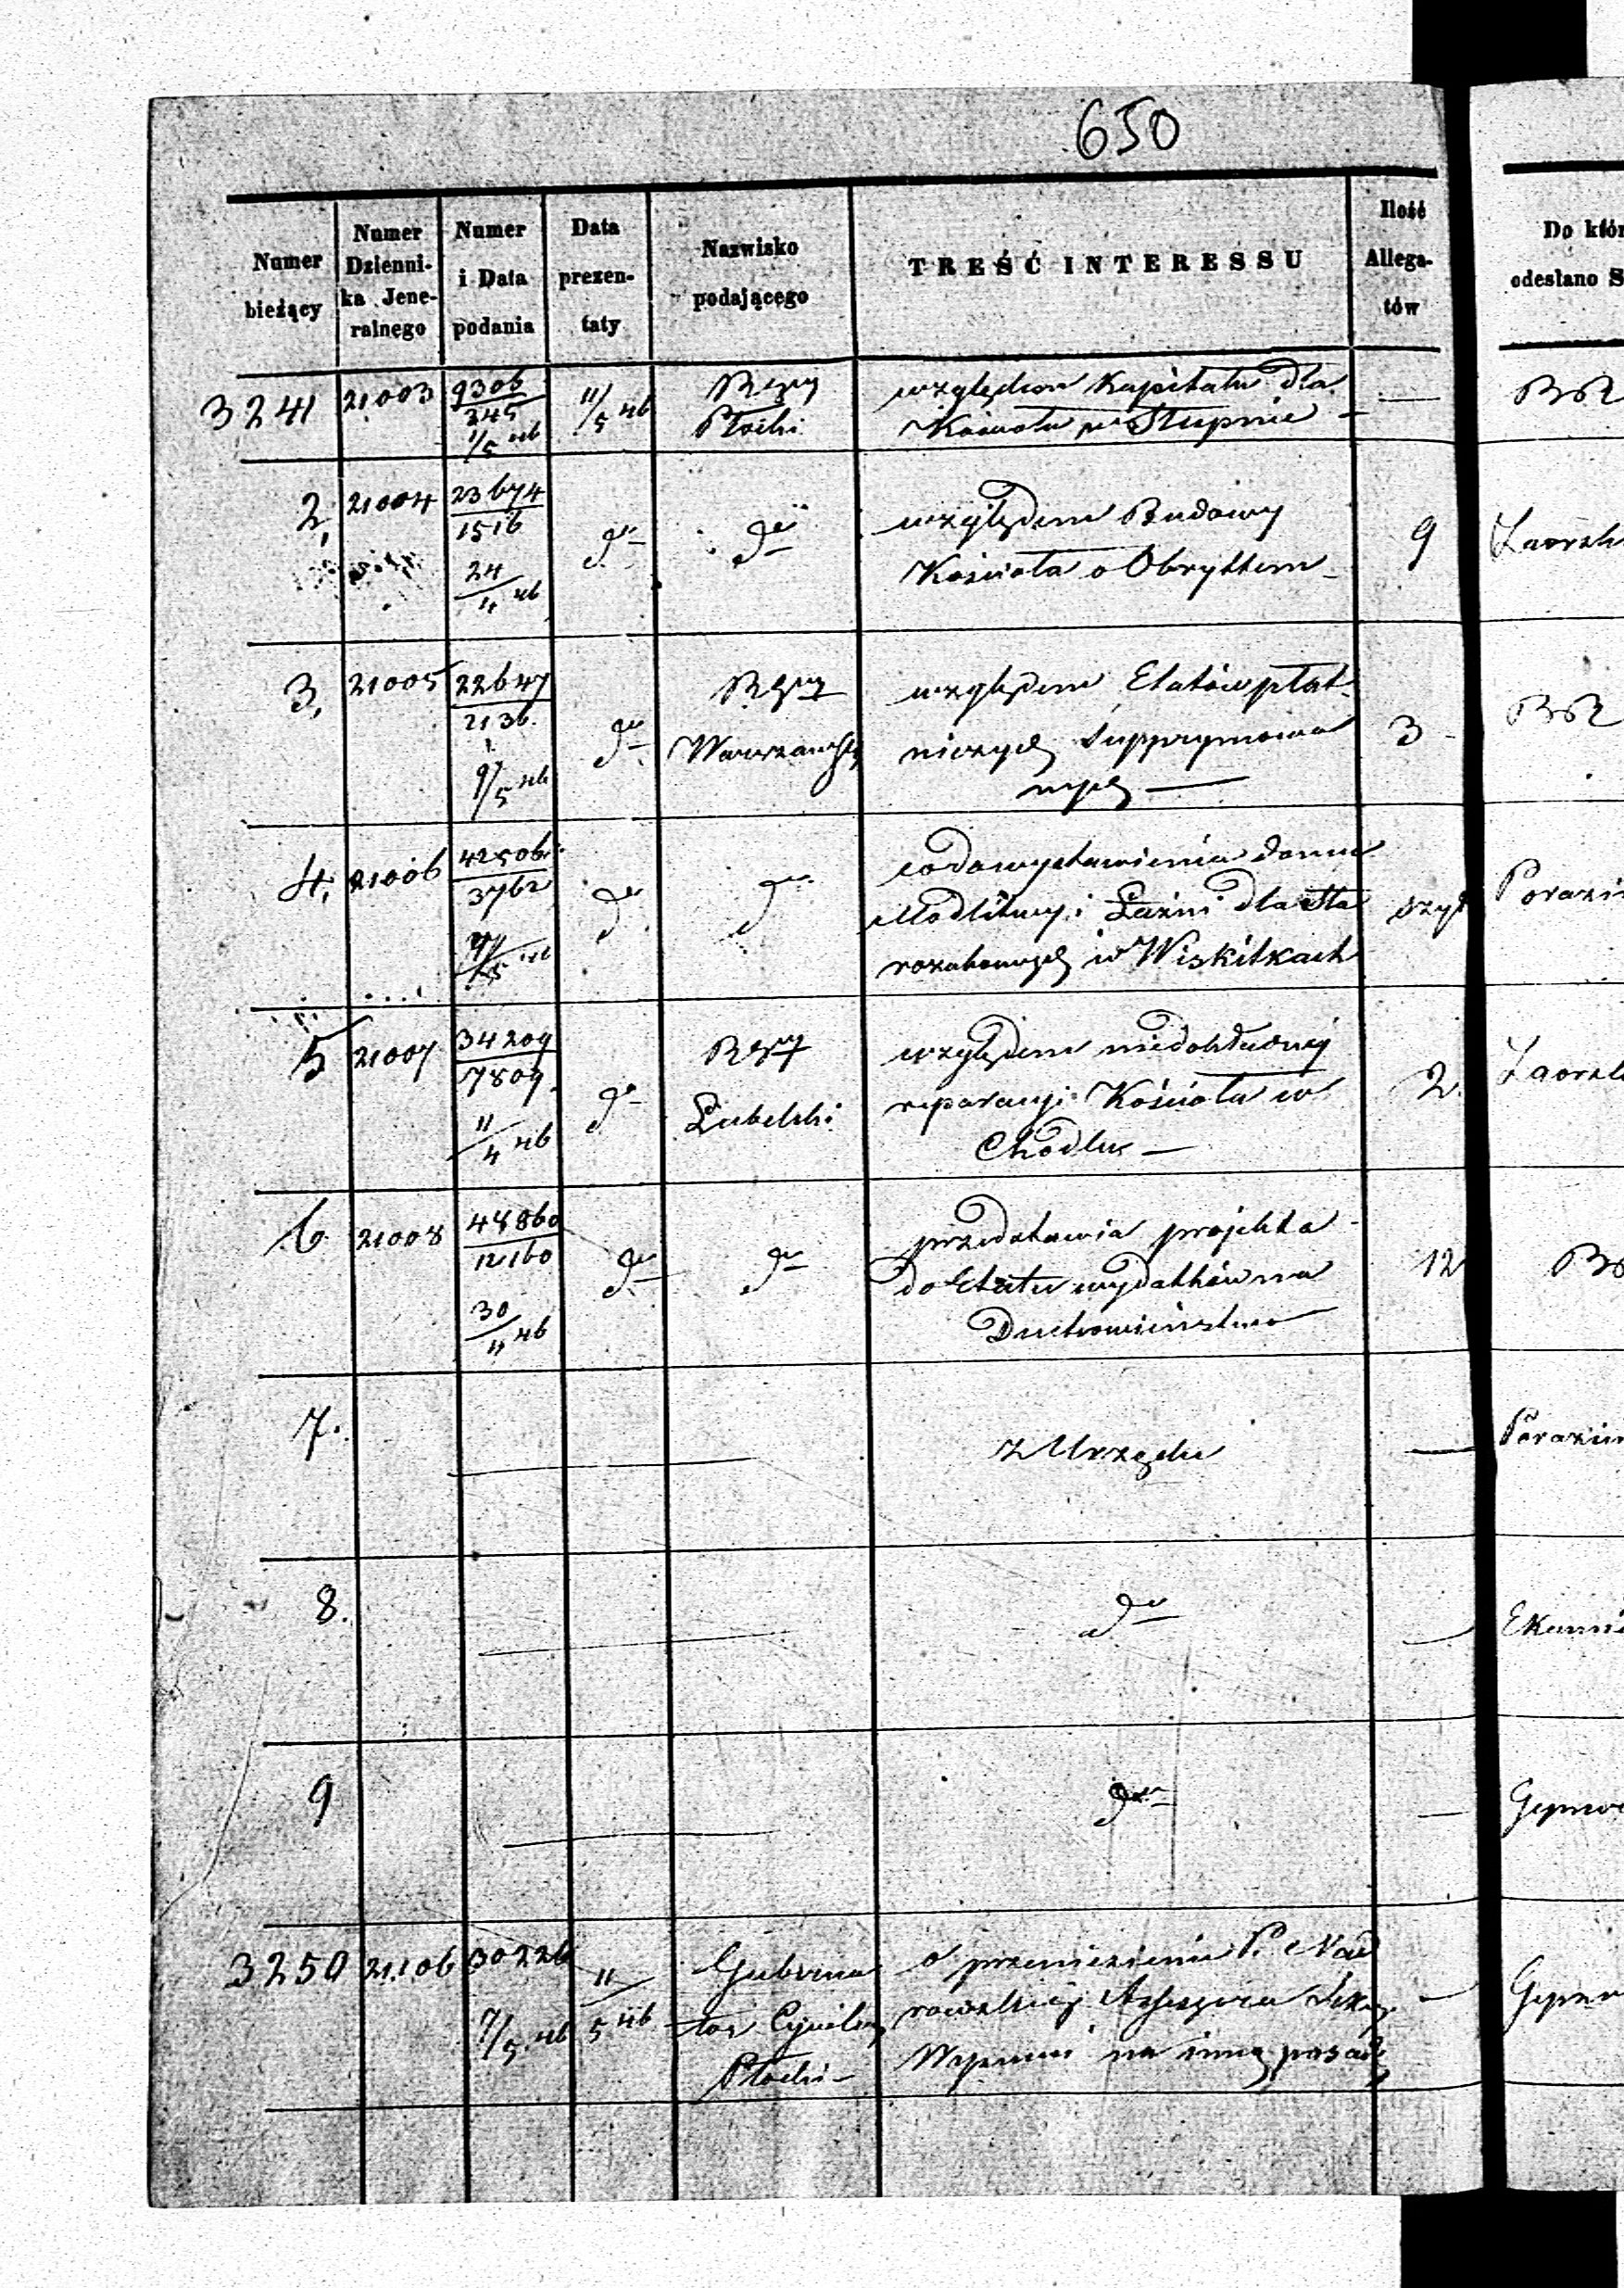 650
Numer bieżący
Numer Dzienni-
ka Jene-
ralnego
Numer i Data podania
Data prezen-
taty
Nazwisko podającego
TREŚĆ INTERESSU
Ilość Allega-
tów
Do któr
odesłano S
3241 21003 9306 11/5 46
345
1/5 46
Płocki
względem Kapitału dla
Kościoła w Słupnie —
2, 21004 23674
1516
24/4 46
do do
względem Budowy
Kościoła o Obryttem
9
3, 21005 22647
2136
9/5 46
do
Warszawski
względem Etatów płat-
niczych supprymowa
nych —
3
4, 21006 42506
3762
do do
modlitwy i Łaźni dla Sta
rozakonnych w Wiskitkach
szyt
5 21007 34209
7809
11/4 46
do
Lubelski
względem niedokładnej
reparacyi Kościoła w
Chodlu —
2
6 21008 48860
12160
30/4 46
do do
przedstawia projekta
do Etatu wydatków na
Duchowieństwo
12
7.
z Urzędu
8.
do
9
do
3250 21106 30226
7/5 46
11/5 46
Guberna
tor Cywilny
Płocki
o przeniesienie P. Nad
na inną posadę